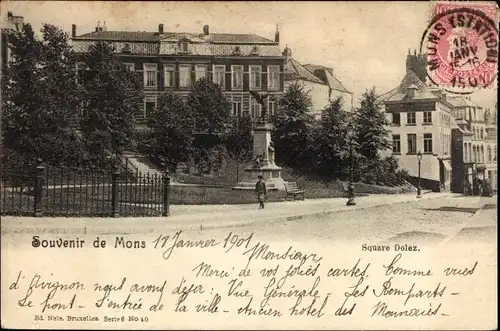 MONS (STATION)
18
JANV
15
1901
Souvenir de Mons
18 Janvier 1901
Square Dolez.
Monsieur
Merci de vos jolies cartes. Comme vues
d'Avignon nous avons déjà: Vue Générale, Les Remparts-
Le pont - Entrée de la ville - Ancien hotel des Monnaies-
Ed. Nels, Bruxelles Serie 6 No 40